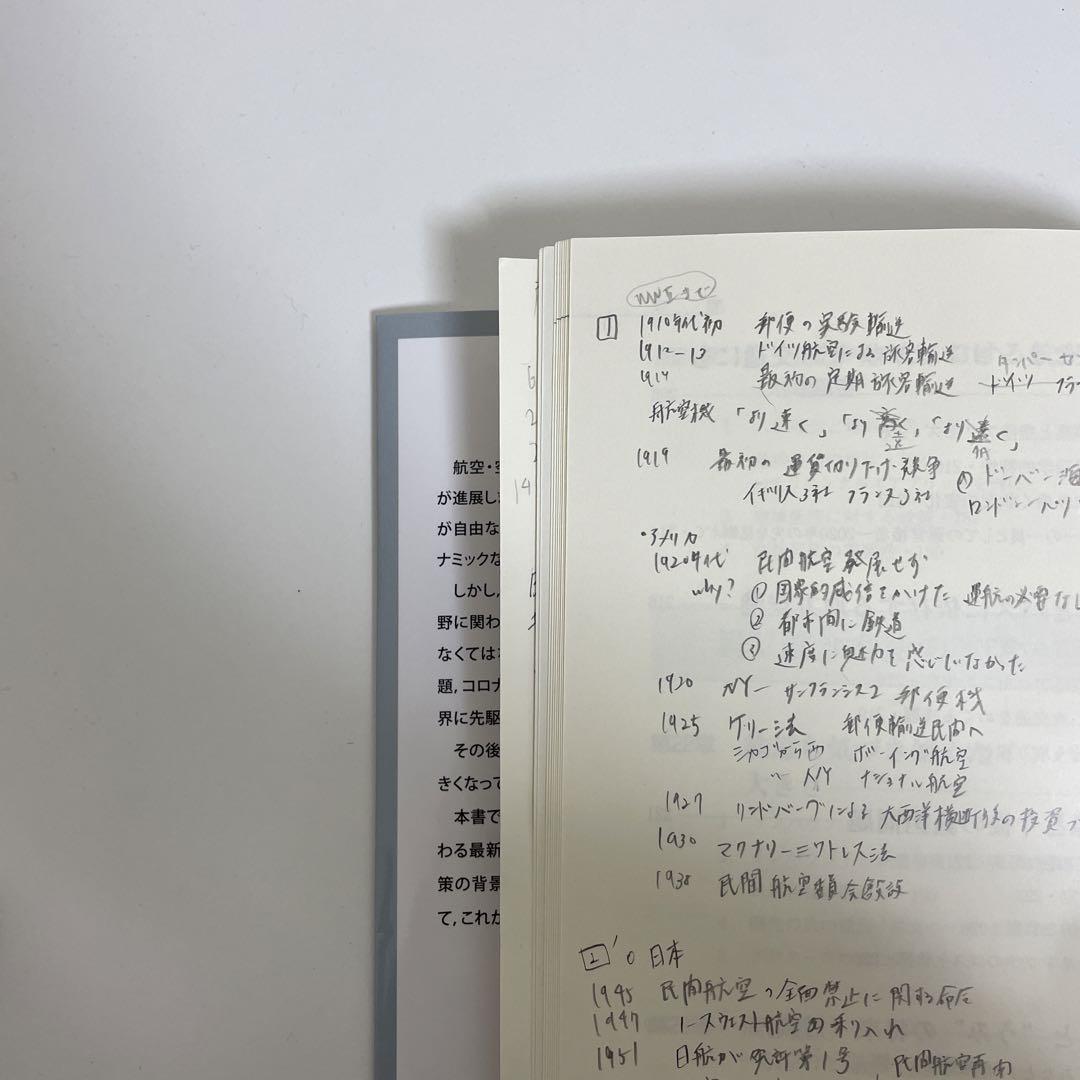 航空・空
が進展し
が自由な
ナミックな
しかし,
野に関わ
なくては
題,コロナ
界に先駆
その後
きくなって
本書で
わる最新
策の背景
て,これか
14
WWⅡまで
1 1910年代初 郵便の実験輸送
1912-13 ドイツ航空による旅客輸送
1914 最初の定期旅客輸送
ドイツ フラ
航空機 「より速く」「より高く」「より遠く」
遠
1919 最初の運賃切り下げ競争 ドーバー海
イギリス3社 フランス3社 ロンドン―パリ
・アメリカ
1920年代 民間航空発展せず
why? ① 国家的威信をかけた 運航の必要なし
② 都市間に鉄道
③ 速度に魅力を感じしなかった
1920 NY―サンフランシスコ 郵便機
1925 ケリー法 郵便輸送民間へ
シカゴから西 ボーイング航空
〃 NY ナショナル航空
1927 リンドバーグによる 大西洋横断後の投資ブ
1930 マクナリーミウトレス法
1938 民間航空委員会創設
2 ' 0 日本
1945 民間航空の全面禁止に関する命令
1947 ノースウェスト航空の乗り入れ
1951 日航が 第1号 民間航空再開